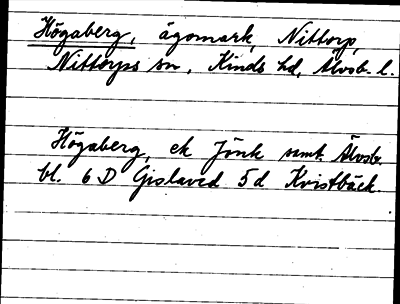 Högaberg, ägomark, Nittorp,
Nittorps sn, Kinds hd, Älvsb. l.
Högaberg, ek Jönk samt Älvsb.
bl. 6 D Gislaved 5 d Kvistbäck.